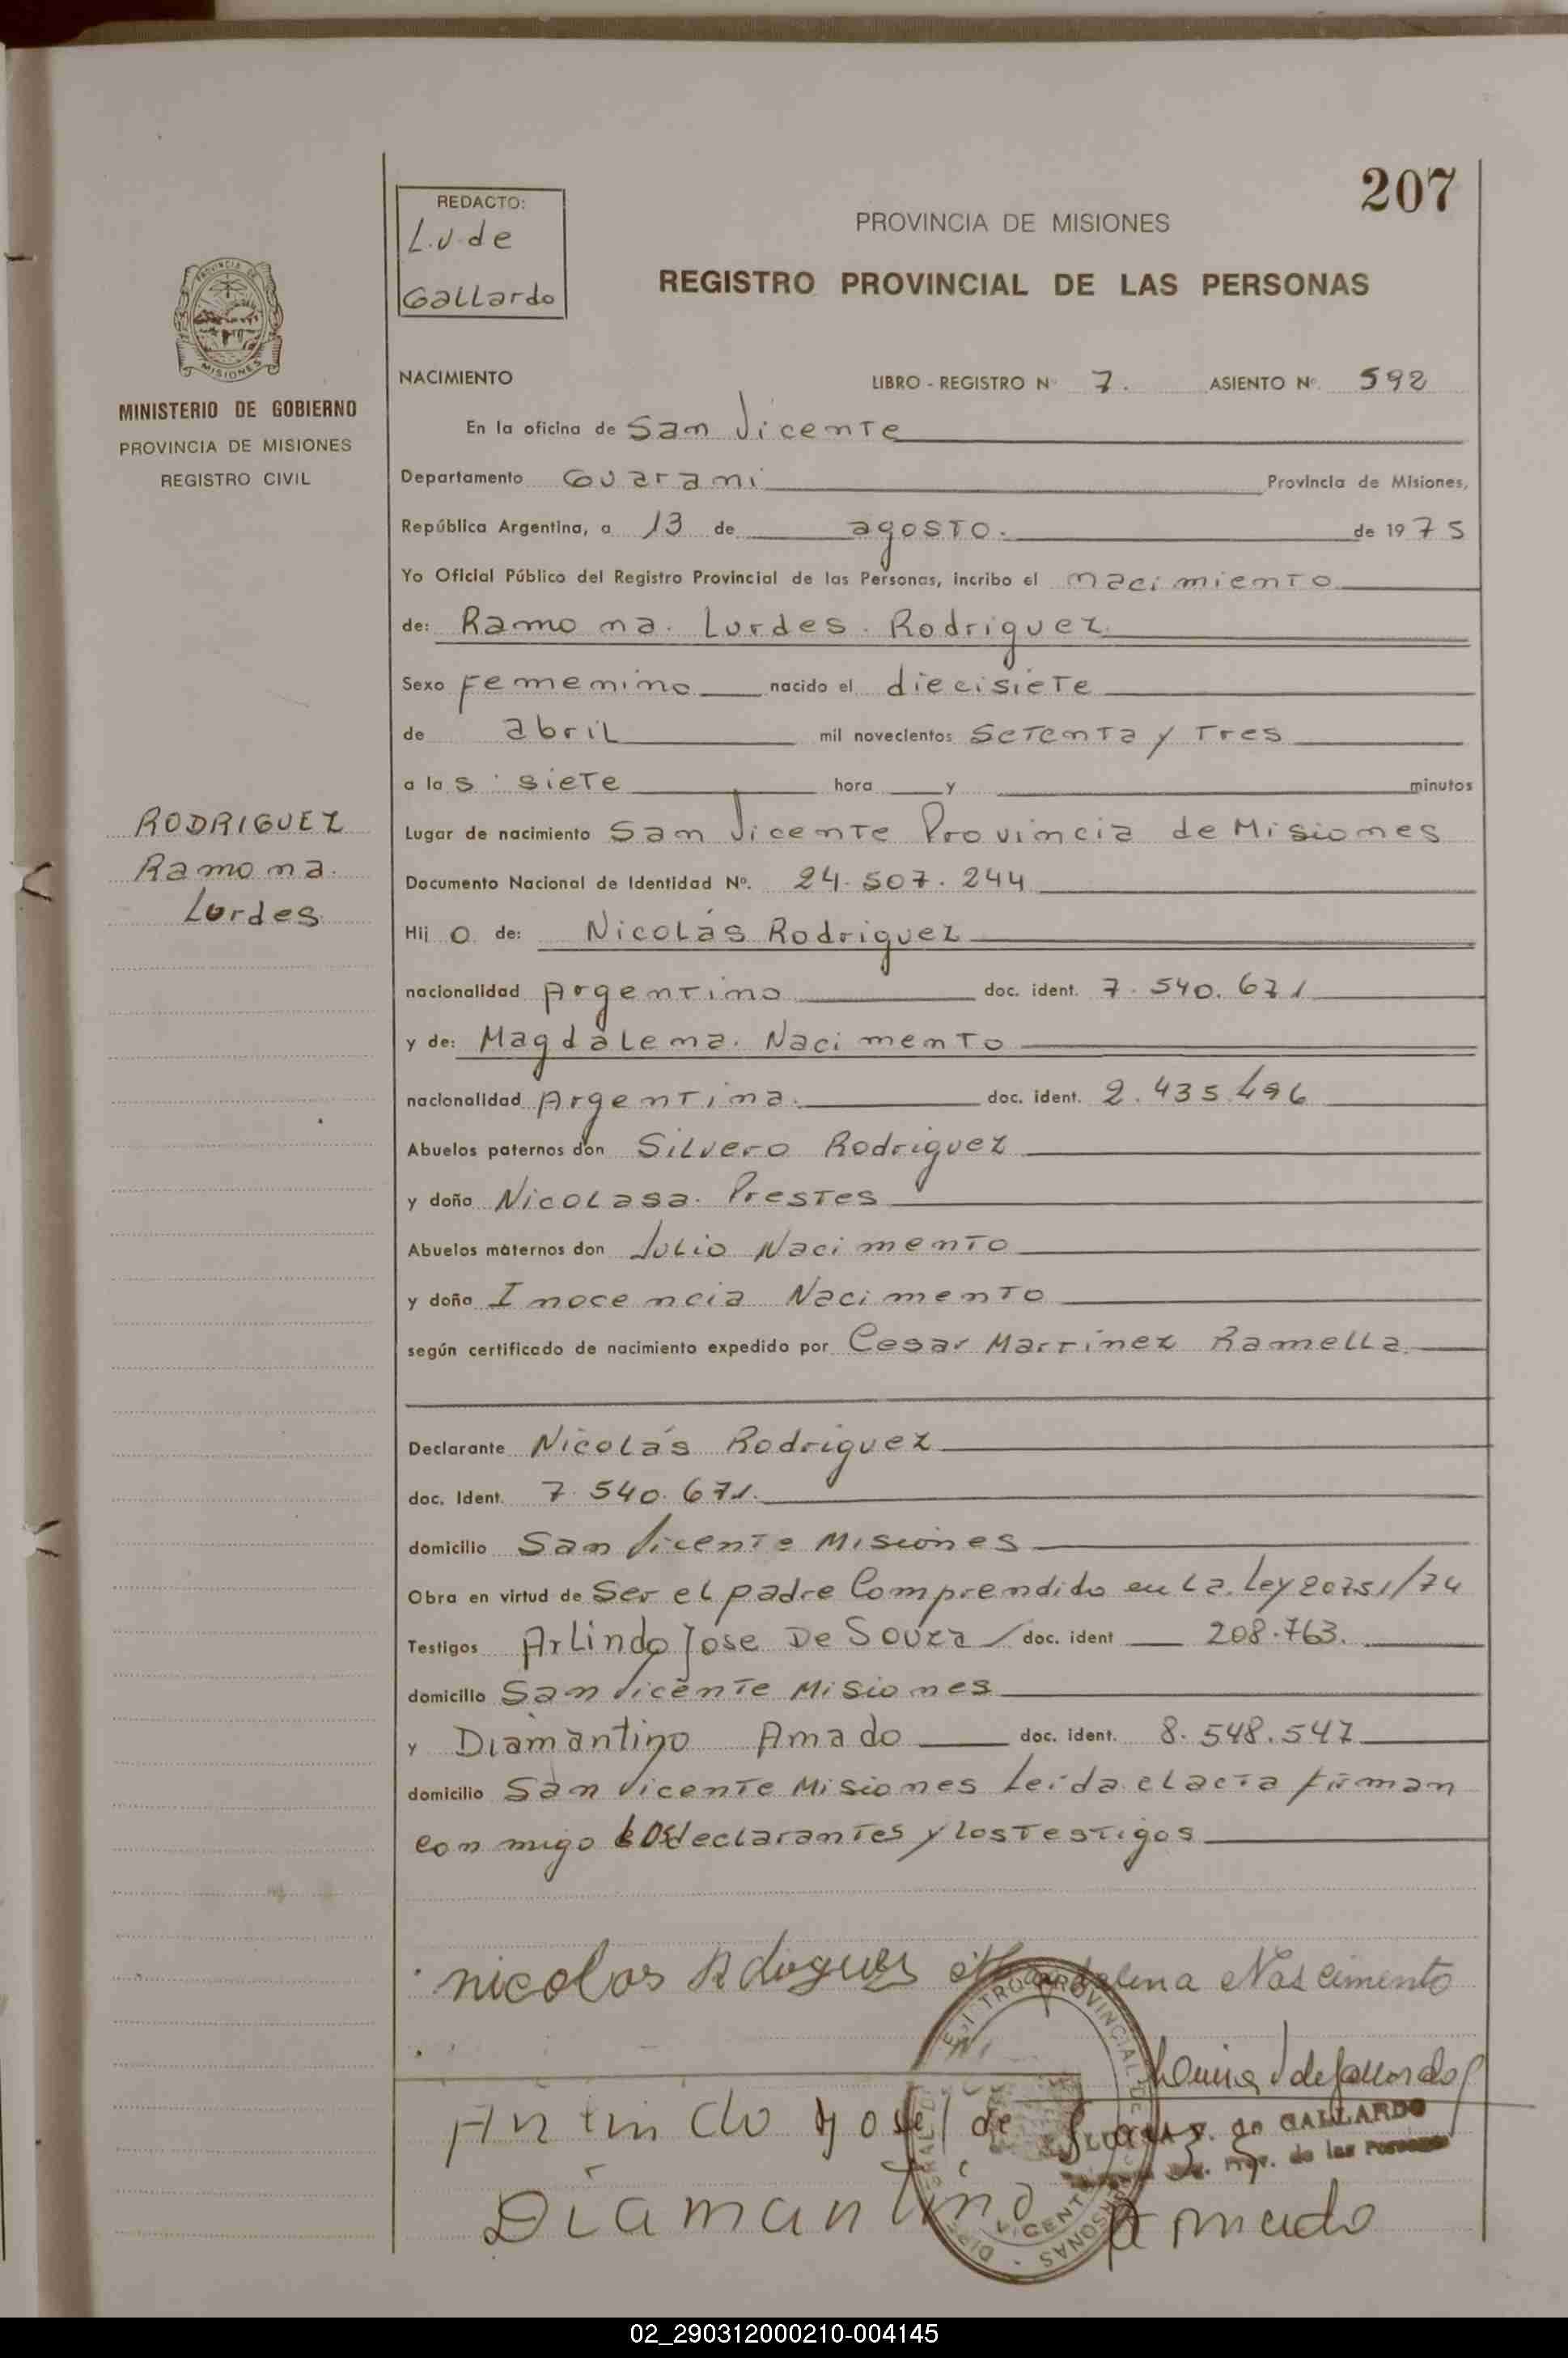 207
REDACTO:
L.V. de
Gallardo
PROVINCIA DE MISIONES
REGISTRO PROVINCIAL DE LAS PERSONAS
PROVINCIA DE MISIONES
MINISTERIO DE GOBIERNO
PROVINCIA DE MISIONES
REGISTRO CIVIL
NACIMIENTO LIBRO - REGISTRO Nº 7. ASIENTO Nº. 592
En la oficina de San Vicente
Departamento Guarani Provincia de Misiones,
República Argentina, a 13 de agosto. de 1975
Yo Oficial Público del Registro Provincial de las Personas, incribo el nacimiento
de: Ramona. Lurdes. Rodriguez
Sexo Femenino nacido el diecisiete
de abril mil novecientos setenta y Tres
a las siete hora y minutos
RODRIGUEZ
Ramona.
Lurdes
Lugar de nacimiento San Vicente Provincia de Misiones
Documento Nacional de Identidad Nº. 24.507.244
Hijo de: Nicolás Rodriguez
nacionalidad Argentino doc. ident. 7.540.671
y de: Magdalena. Nacimento
nacionalidad Argentina. doc. ident. 2.435.496
Abuelos paternos don Silvero Rodriguez
y doña Nicolasa. Prestes
Abuelos maternos don Julio Nacimento
y doña Inocencia Nacimento
según certificado de nacimiento expedido por Cesar Martinez Ramella.
Declarante Nicolás Rodriguez
doc. Ident. 7.540.671.
domicilio San Vicente Misiones
Obra en virtud de Ser el padre Comprendido en la Ley 20751/74
Testigos Arlindo Jose De Souza / doc. ident 208.763.
domicilio San Vicente Misiones
y Diamantino Amado doc. ident. 8.548.547
domicilio San Vicente Misiones Leida el acta firman
con migo los declarantes y los Testigos
nicolas Rdogues Magdalena Nascimento
Luisa V de Gallardo
Arlindo Jose de
V. de GALLARDO
Prov. de las Personas
Diamantino Amado
REGISTRO PROVINCIAL DE
PERSONAS
VICENTE
02_290312000210-004145